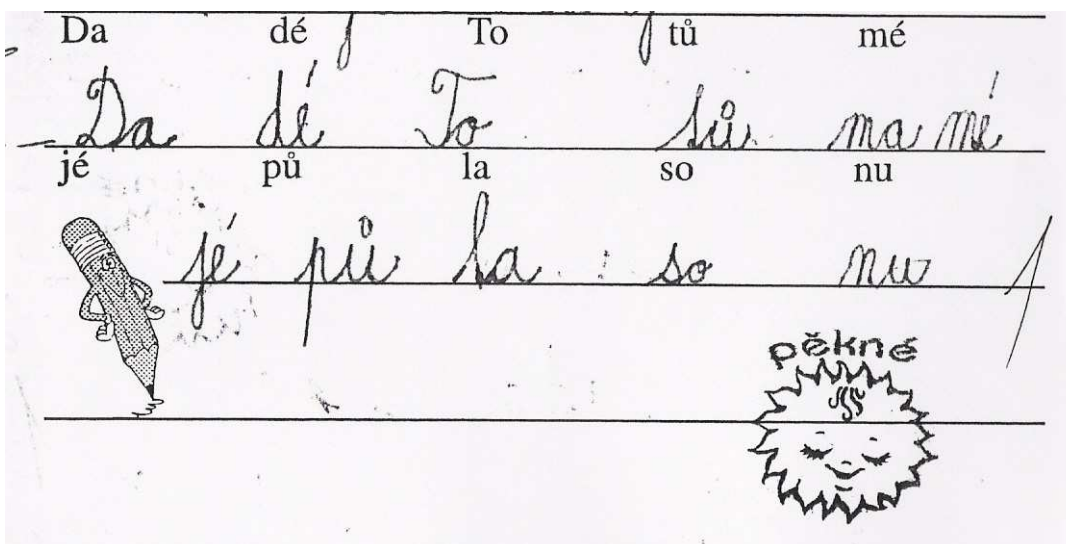 Da dé To tů mé
Da dé To tů ma mé
jé pů la so nu
jé pů la so nu 1
pěkné